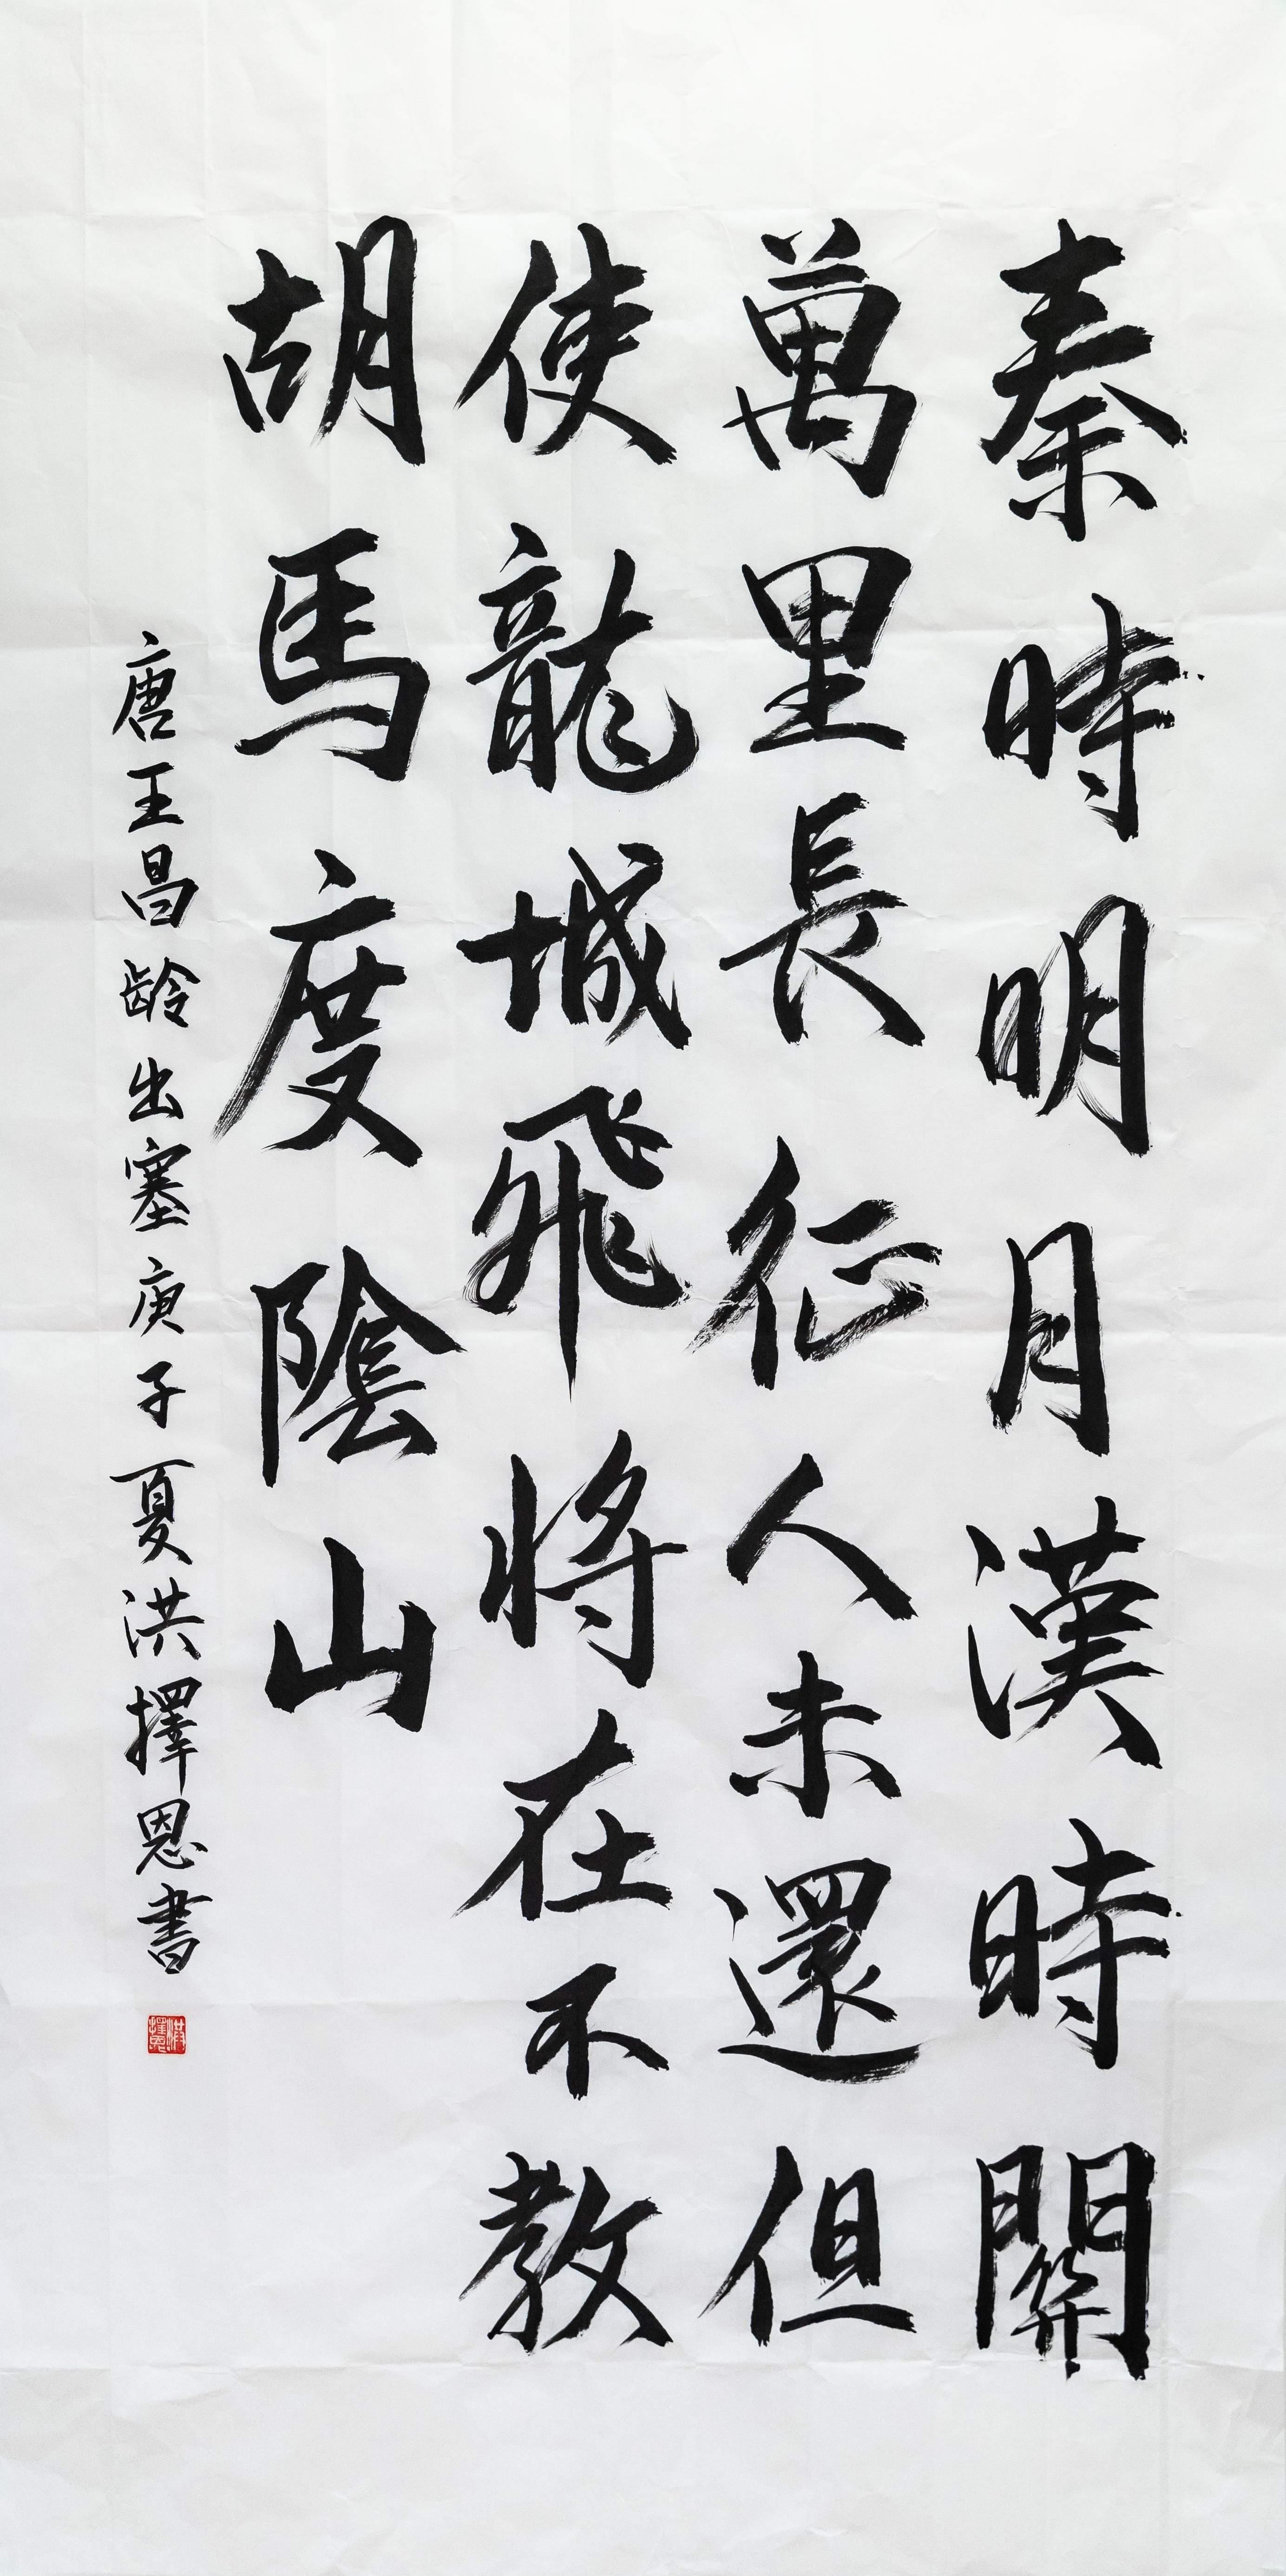 秦時明月漢時關
萬里長征人未還但
使龍城飛將在不教
胡馬度陰山
唐王昌龄出塞庚子夏洪擇恩書
洪擇恩